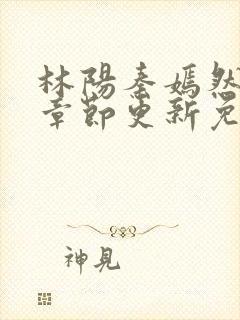 林陽秦嫣然
章節更新免
神見